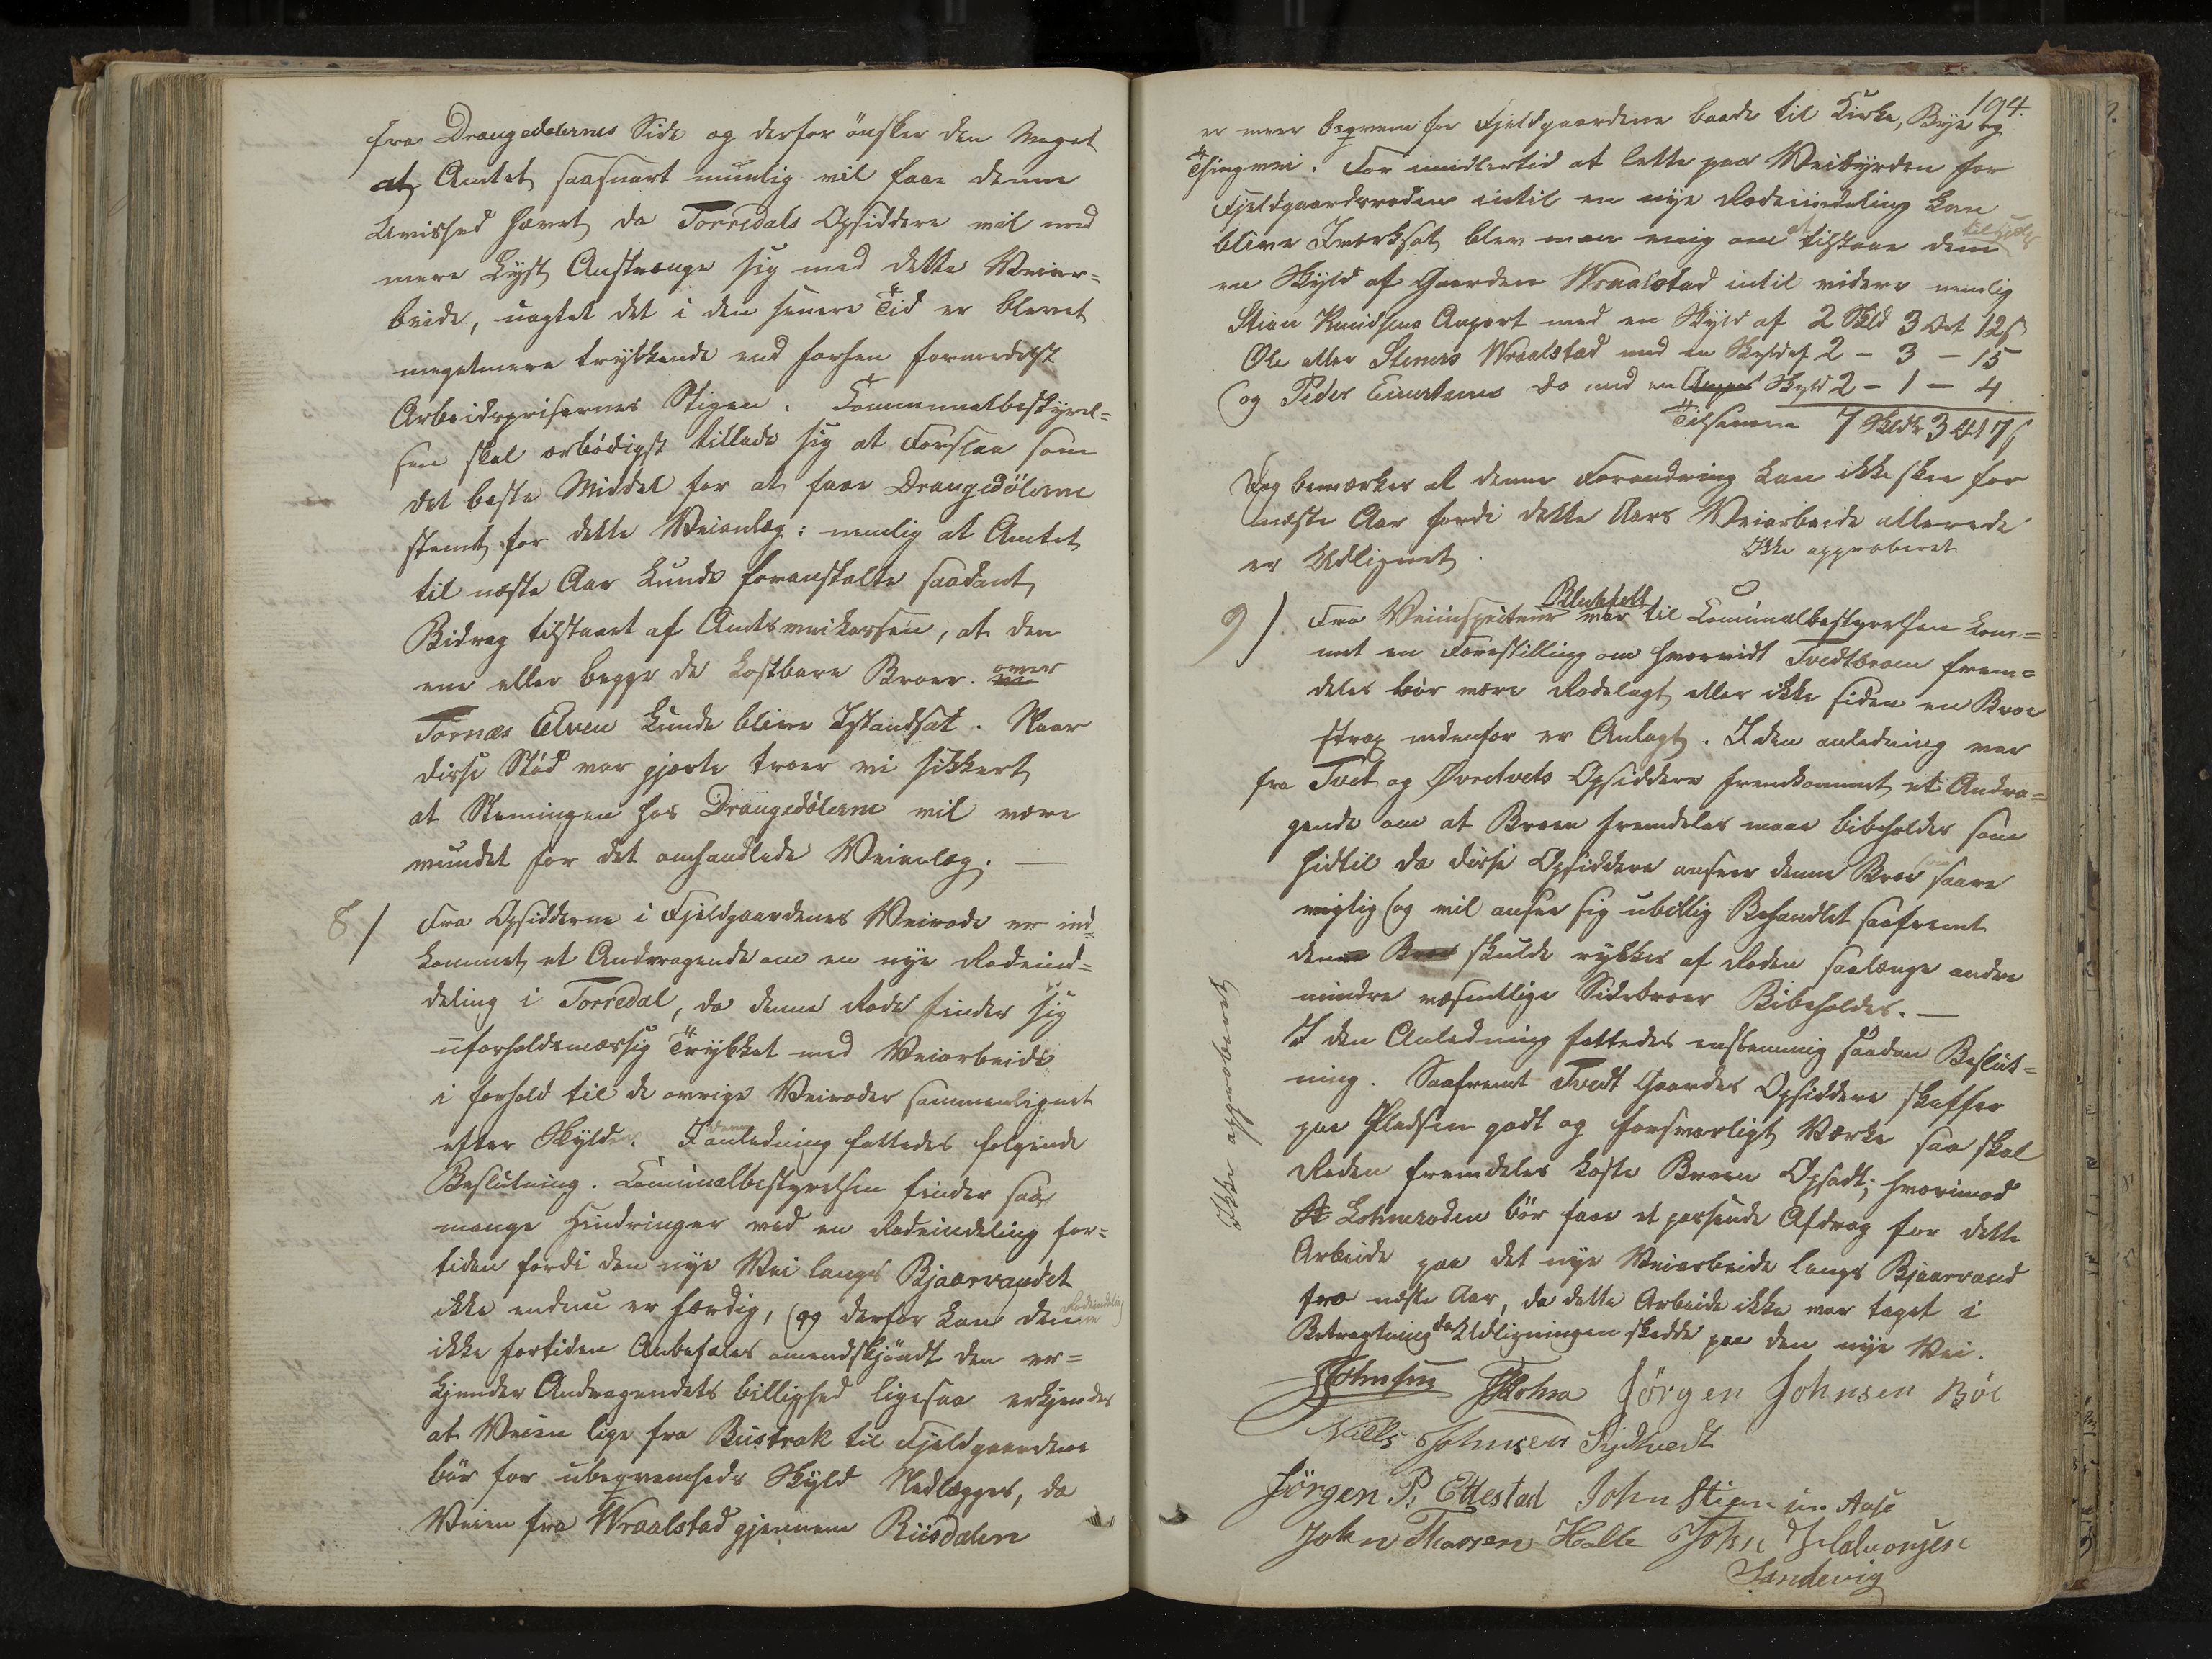 fra Drangedølernes Side og derfor ønsker den Meget
at Amtet saasnart muelig vil faae denne
Uvished hævet da Torredals Opsiddere vil med
mere Lyst Anstrænge sig med dette Veiar-
beide, uagtet det i den senere Tid er blevet
megetmere trykkende end forhen formedelst
Arbeidsprisernes Stigen. Communalbestyrel-
sen skal ærbødigst tillade sig at Forslaa som
det beste Middel for at faae Drangedølerne
stemt for dette Veianlæg: nemlig at Amtet
til næste Aar kunde foranstalte saadant
Bidrag tilstaaet af Amtsveikassen, at den
ene eller begge de kostbare Broer over
Tornæs Elven kunde blive Istandsat. Naar
disse Stød var gjorte troer vi sikkert
at Stemingen hos Drangedølerne vil være
vundet for det omhandlede Veianlæg. —
8/ Fra Opsidderne i Fjeldgaardenes Veirode er ind-
kommet et Andragende om en nye Rodeind-
deling i Torredal, da denne Rode finder sig
uforholdsmæssig Trykket med Veiarbeide
i forhold til de øvrige Veiroder sammenlignet
efter Skylden. I den anledning fattedes følgende
Beslutning. Communalbestyrelsen finder saa
mange Hindringer ved en Rodeindeling for-
tiden fordi den nye Vei langs Bjaarvandet
ikke endnu er færdig, og derfor kan denne Rodeindeling
ikke fortiden Anbefales omendskjøndt den er-
kjender Andragendets billighed ligesaa erkjendes
at Veien lige fra Bustrak til Fjeldgaardene
bør for ubeqvemheds Skyld Nedlægges, da
Veien fra Wraalstad gjennem Riisdalen
194.
er meer beqvem for Fjeldgaardene baade til Kirke, Bye og
Thingvei. For imidlertid at lette paa Veibyrden for
Fjeldgaardsroden intil en nye Rodeinddeling kan
blive Iværksat blev man enig om at tilstaae dem tillagt
en Skyld af Gaarden Wraalstad intil videre nemlig
Stian Knudsens Anpart med en Skyld af 2 Skld 3 Ort 12 s
Ole eller Steners Wraalstad med en Skyld af 2 – 3 – 15
og Peder Eivertsens do med en Skyld 2 – 1 – 4
Tilsamen 7 Skldr 3 Ort 7 s
Dog bemærkes at denne Forandring kan ikke skee for
næste Aar fordi dette Aars Veiarbeide allerede
er Udlignet.
Ikke approberet
9/ Fra Veiinspecteur Blehfelt var til Communalbestyrelsen kom-
met en Forestilling om hvorvidt Tvedtbroen frem-
deles bør være Rodelagt eller ikke siden en Broe
strax nedenfor er Anlagt. I den anledning var
fra Tvet og Øvretvets Opsiddere fremkommet et Andra-
gende om at Broen fremdeles maae bibeholdes som
hidtil da disse Opsiddere anseer denne Broe saare
vigtig og vil ansee sig ubillig Behandlet saafremt
denne Broe skulde rykkes af Roden saalænge andre
mindre væsentlige Sidebroer Bibeholdes. —
I den Anledning fattedes enstemmig saadan Beslut-
ning. Saafremt Tvedt Gaardes Opsiddere skaffer
paa Pladsen godt og forsvarligt Værke saa skal
Roden fremdeles koste Broen Opsadt; hvorimod
Lohneroden bør faae et passende Afdrag for dette
Arbeide paa det nye Veiarbeide langs Bjaarvand
fra næste Aar, da dette Arbeide ikke var taget i
Betragtning da Udligningen skedde paa den nye Vei.
Ikke approberet
Johnsen Lohne Jörgen Johnsen Bøe
Niels Johnsen Sydtvedt
Jörgen P. Ettestad John Stiansen Aase
John Thorsen Holte John Halvorsen
Sandevig